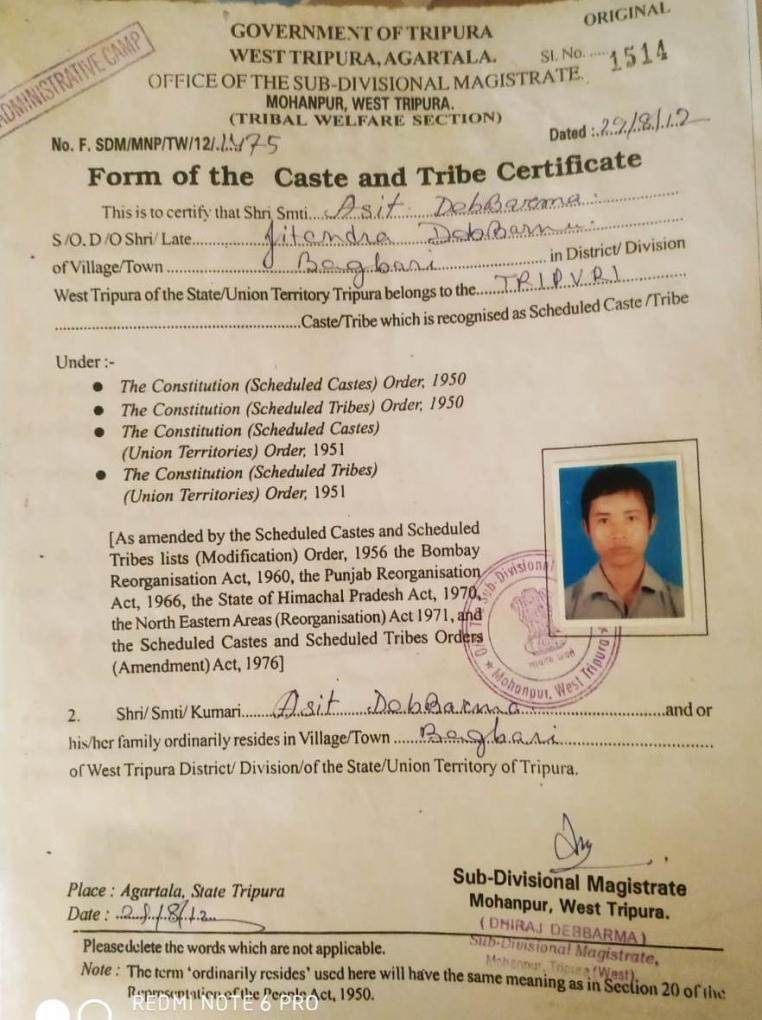 ORIGINAL
GOVERNMENT OF TRIPURA
WEST TRIPURA, AGARTALA.
Sl. No. .....1514
ADMINISTRATIVE CAMP
OFFICE OF THE SUB-DIVISIONAL MAGISTRATE.
MOHANPUR, WEST TRIPURA.
(TRIBAL WELFARE SECTION)
No. F. SDM/MNP/TW/12/.1475
Dated :.22/8/12
Form of the Caste and Tribe Certificate
This is to certify that Shri Smti....Asit DebBarma.
S/O. D/O Shri/ Late.........Jitendra DebBarma.
of Village/Town ..........Bagbari..........in District/ Division
West Tripura of the State/Union Territory Tripura belongs to the.....TRIPURI
..........Caste/Tribe which is recognised as Scheduled Caste /Tribe
Under :-
● The Constitution (Scheduled Castes) Order, 1950
● The Constitution (Scheduled Tribes) Order, 1950
● The Constitution (Scheduled Castes)
(Union Territories) Order, 1951
● The Constitution (Scheduled Tribes)
(Union Territories) Order, 1951
[As amended by the Scheduled Castes and Scheduled
Tribes lists (Modification) Order, 1956 the Bombay
Reorganisation Act, 1960, the Punjab Reorganisation
Act, 1966, the State of Himachal Pradesh Act, 1970,
the North Eastern Areas (Reorganisation) Act 1971, and
the Scheduled Castes and Scheduled Tribes Orders
(Amendment) Act, 1976]
Sub-Divisional
Mohanpur, West Tripura
2. Shri/ Smti/ Kumari......Asit DebBarma..........and or
his/her family ordinarily resides in Village/Town .....Bagbari..........
of West Tripura District/ Division/of the State/Union Territory of Tripura.
Sub-Divisional Magistrate
Mohanpur, West Tripura.
(DHIRAJ DEBBARMA)
Sub-Divisional Magistrate,
Mohanpur, Tripura (West).
Place : Agartala, State Tripura
Date :
Please delete the words which are not applicable.
Note : The term 'ordinarily resides' used here will have the same meaning as in Section 20 of the
Representation of the People Act, 1950.
REDMI NOTE 6 PRO